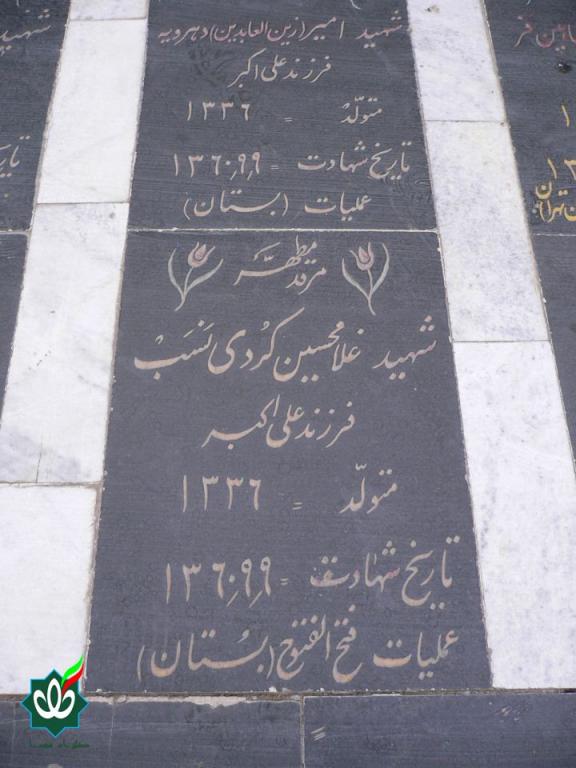 شهید امیر(زین العابدین) دهرویه
فرزند علی اکبر
متولد = ۱۳۳۶
تاریخ شهادت = ۱۳۶۰٫۹٫۹
عملیات (بستان)
مرقد مطهر
شهید غلامحسین کُردی نَسَب
فرزند علی اکبر
متولّد = ۱۳۳۶
تاریخ شهادت = ۱۳۶۰٫۹٫۹
عملیات فتح الفتوح (بُستان)
شهید
تاریخ
تهران